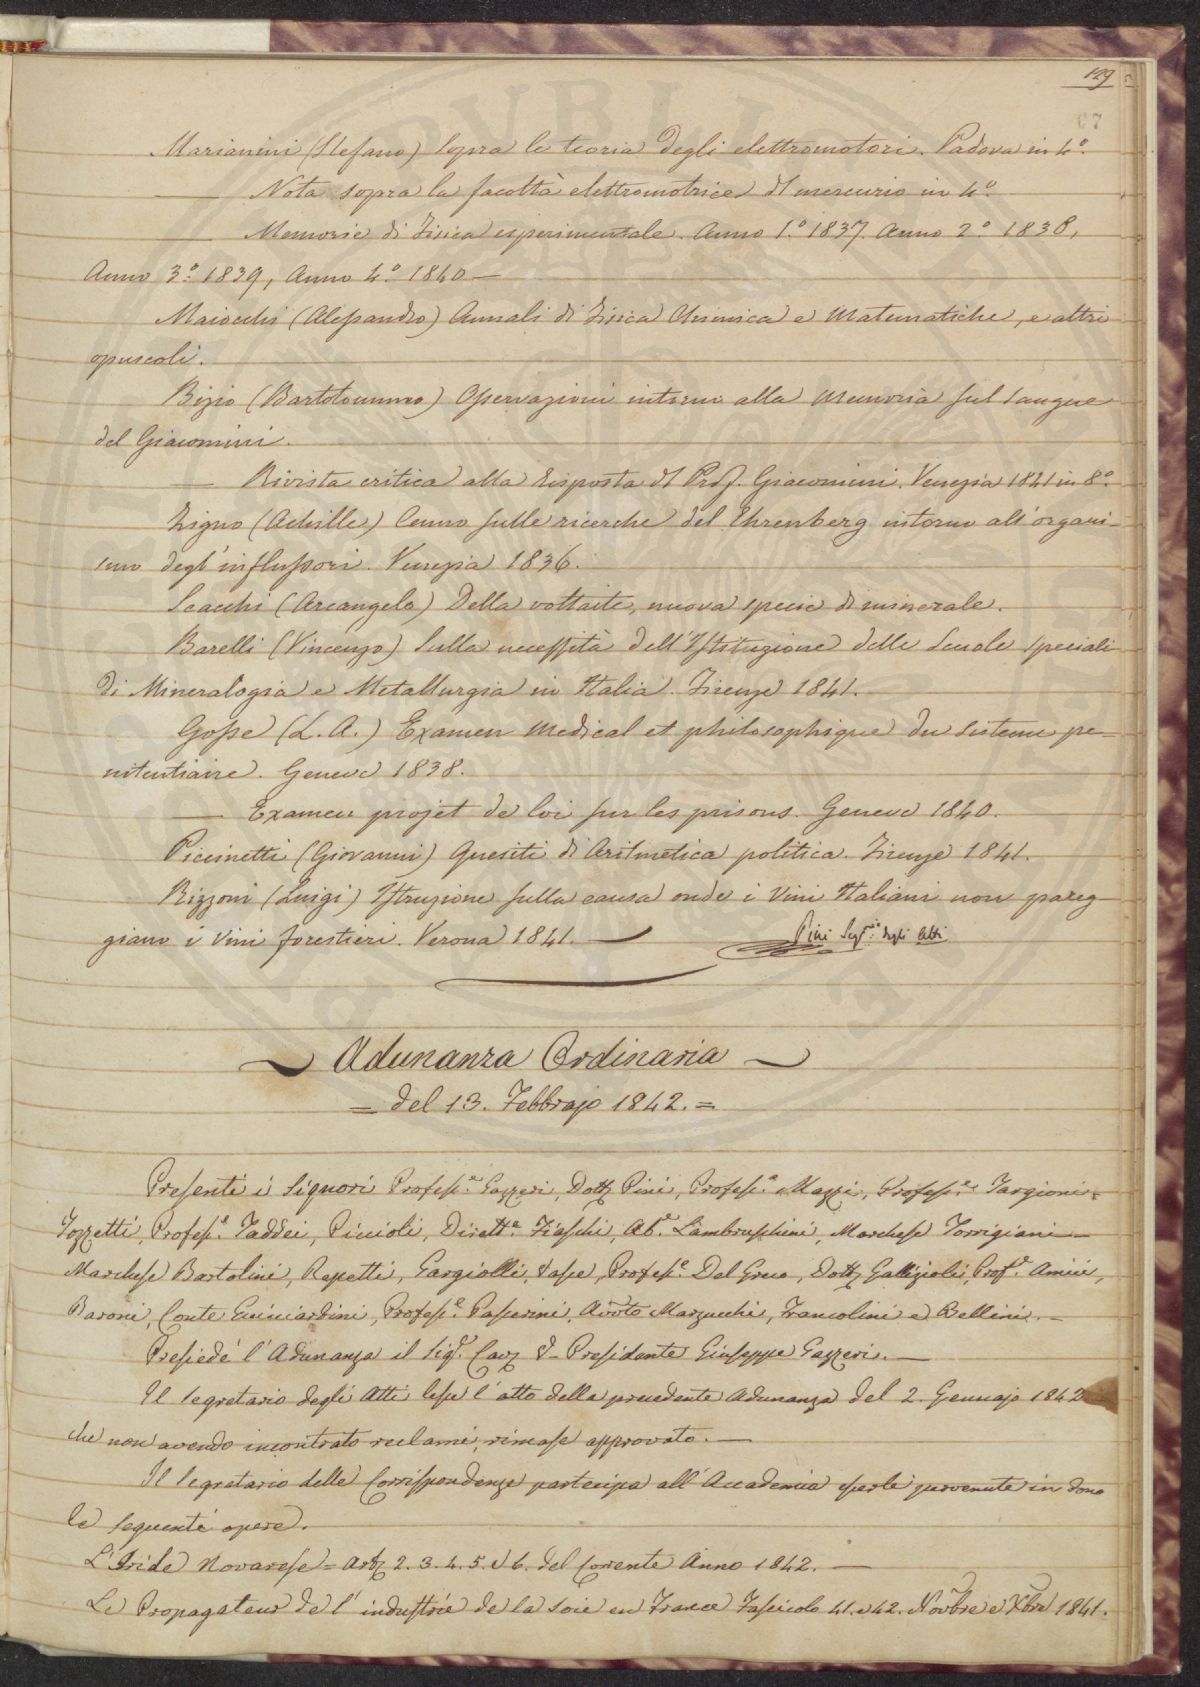 129
67
Marianini (Stefano) Sopra la teoria degli elettromotori. Padova in 4.º
—— Nota sopra la facoltà elettromotrice dl mercurio in 4.º
—— Memorie di Fisica esperimentale. Anno 1.º 1837. Anno 2.º 1838,
Anno 3.º 1839, Anno 4.º 1840 —
Maiocchi (Alessandro) Annali di Fisica Chimica e Matematiche, e altri
opuscoli.
Bizio (Bartolommeo) Osservazioni intorno alla Memoria sul Sangue
del Giacomini.
—— Rivista critica alla Risposta dl Prof. Giacomini. Venezia 1841 in 8.º
Zigno (Achille) Cenno sulle ricerche del Ehrenberg intorno all'organi-
smo degl'influssori. Venezia 1836.
Scacchi (Arcangelo) Della voltaite, nuova specie di minerale.
Barelli (Vincenzo) Sulla necessità dell'Istituzione delle Scuole speciali
di Mineralogia e Metallurgia in Italia. Firenze 1841.
Gosse (L. A.) Examen Medical et philosophique du Sisteme pe-
nitentiaire. Geneve 1838.
—— Examen projet de loi sur les prisons. Geneve 1840.
Piccinetti (Giovanni) Quesiti di Aritmetica politica. Firenze 1841.
Rizzoni (Luigi) Istruzione sulla causa onde i Vini Italiani non pareg
giano i Vini forestieri. Verona 1841. —
Pini Segr.io degli Atti
Adunanza Ordinaria
= del 13. Febbrajo 1842. =
Presenti i Signori Profess.e Gazzeri, Dott. Pini, Profess.e Mazzi, Profess.e Targioni=
Tozzetti, Profess.e Taddei, Piccioli, Dirett.e Fiaschi, Ab.e Lambruschini, Marchese Torrigiani —
Marchese Bartolini, Repetti, Gargiolli, Passe, Profess.e Del Greco, Dott. Gallizioli, Prof.e Amici,
Baroni, Conte Guicciardini, Profess.e Passerini, Avv.to Marzucchi, Francolini e Bellini. —
Presiedè l'Adunanza il Sig.r Cav. V- Presidente Giuseppe Gazzeri. —
Il Segretario degli Atti lesse l'atto della precedente Adunanza del 2. Gennajo 1842
che non avendo incontrato reclami, rimase approvato. —
Il Segretario delle Corrispondenze partecipa all'Accademia esserle pervenute in dono
le seguenti opere.
L'Iride Novarese = Art. 2. 3. 4. 5. e 6. del Corrente Anno 1842. —
Le Propagateur de l'industrie de la soie en France Fascicolo 41. e 42. Novbre e Xbre 1841.